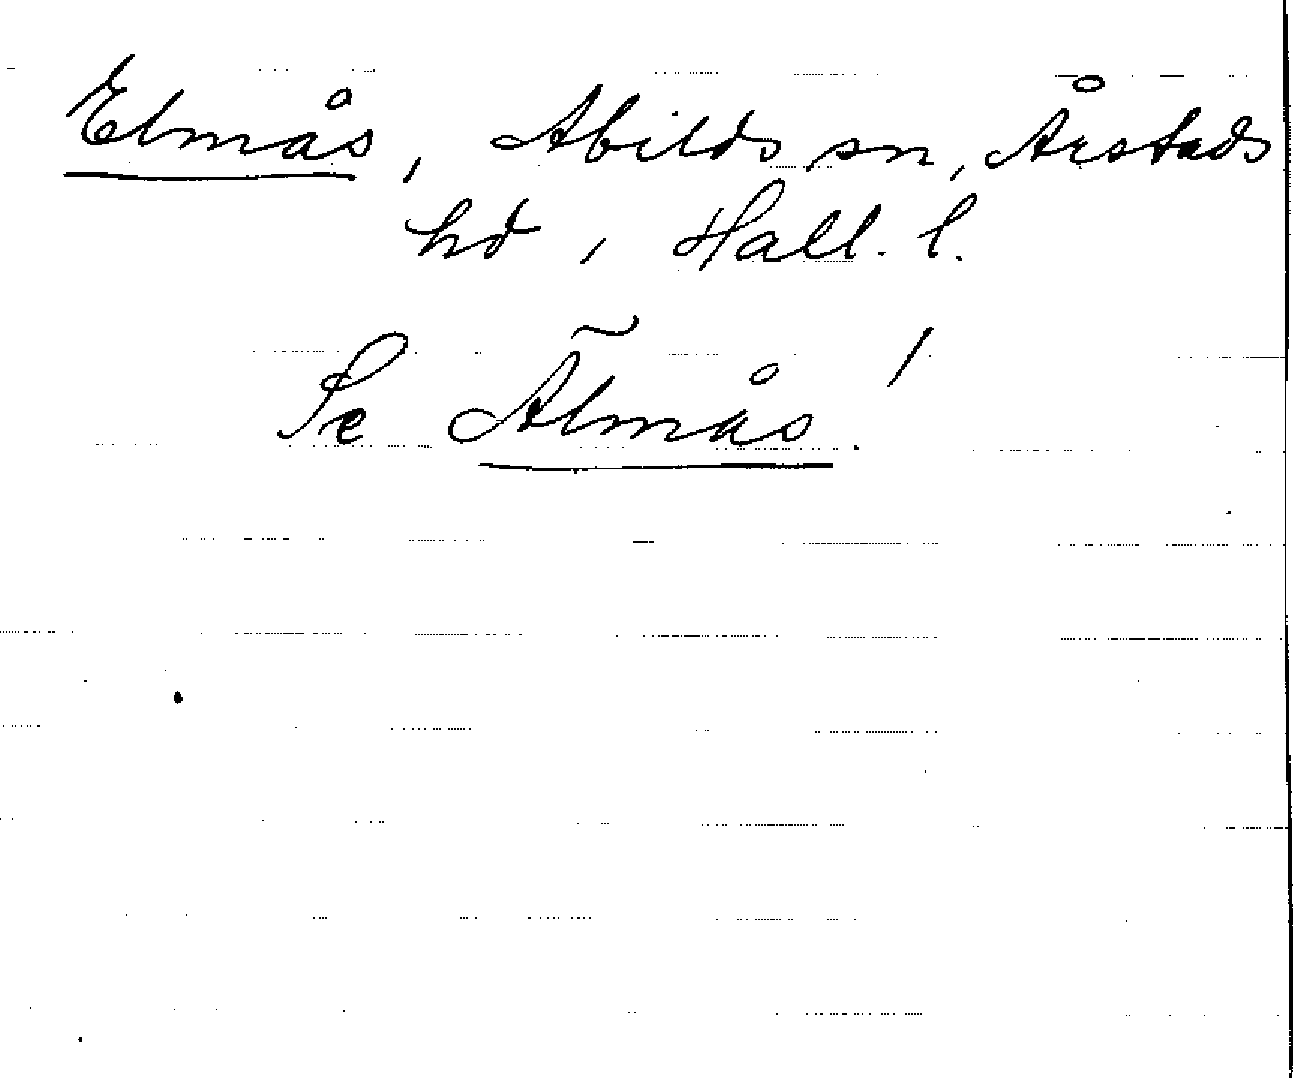 Elmås, Abilds sn, Årstads
hd, Hall. l.
Se Älmås!